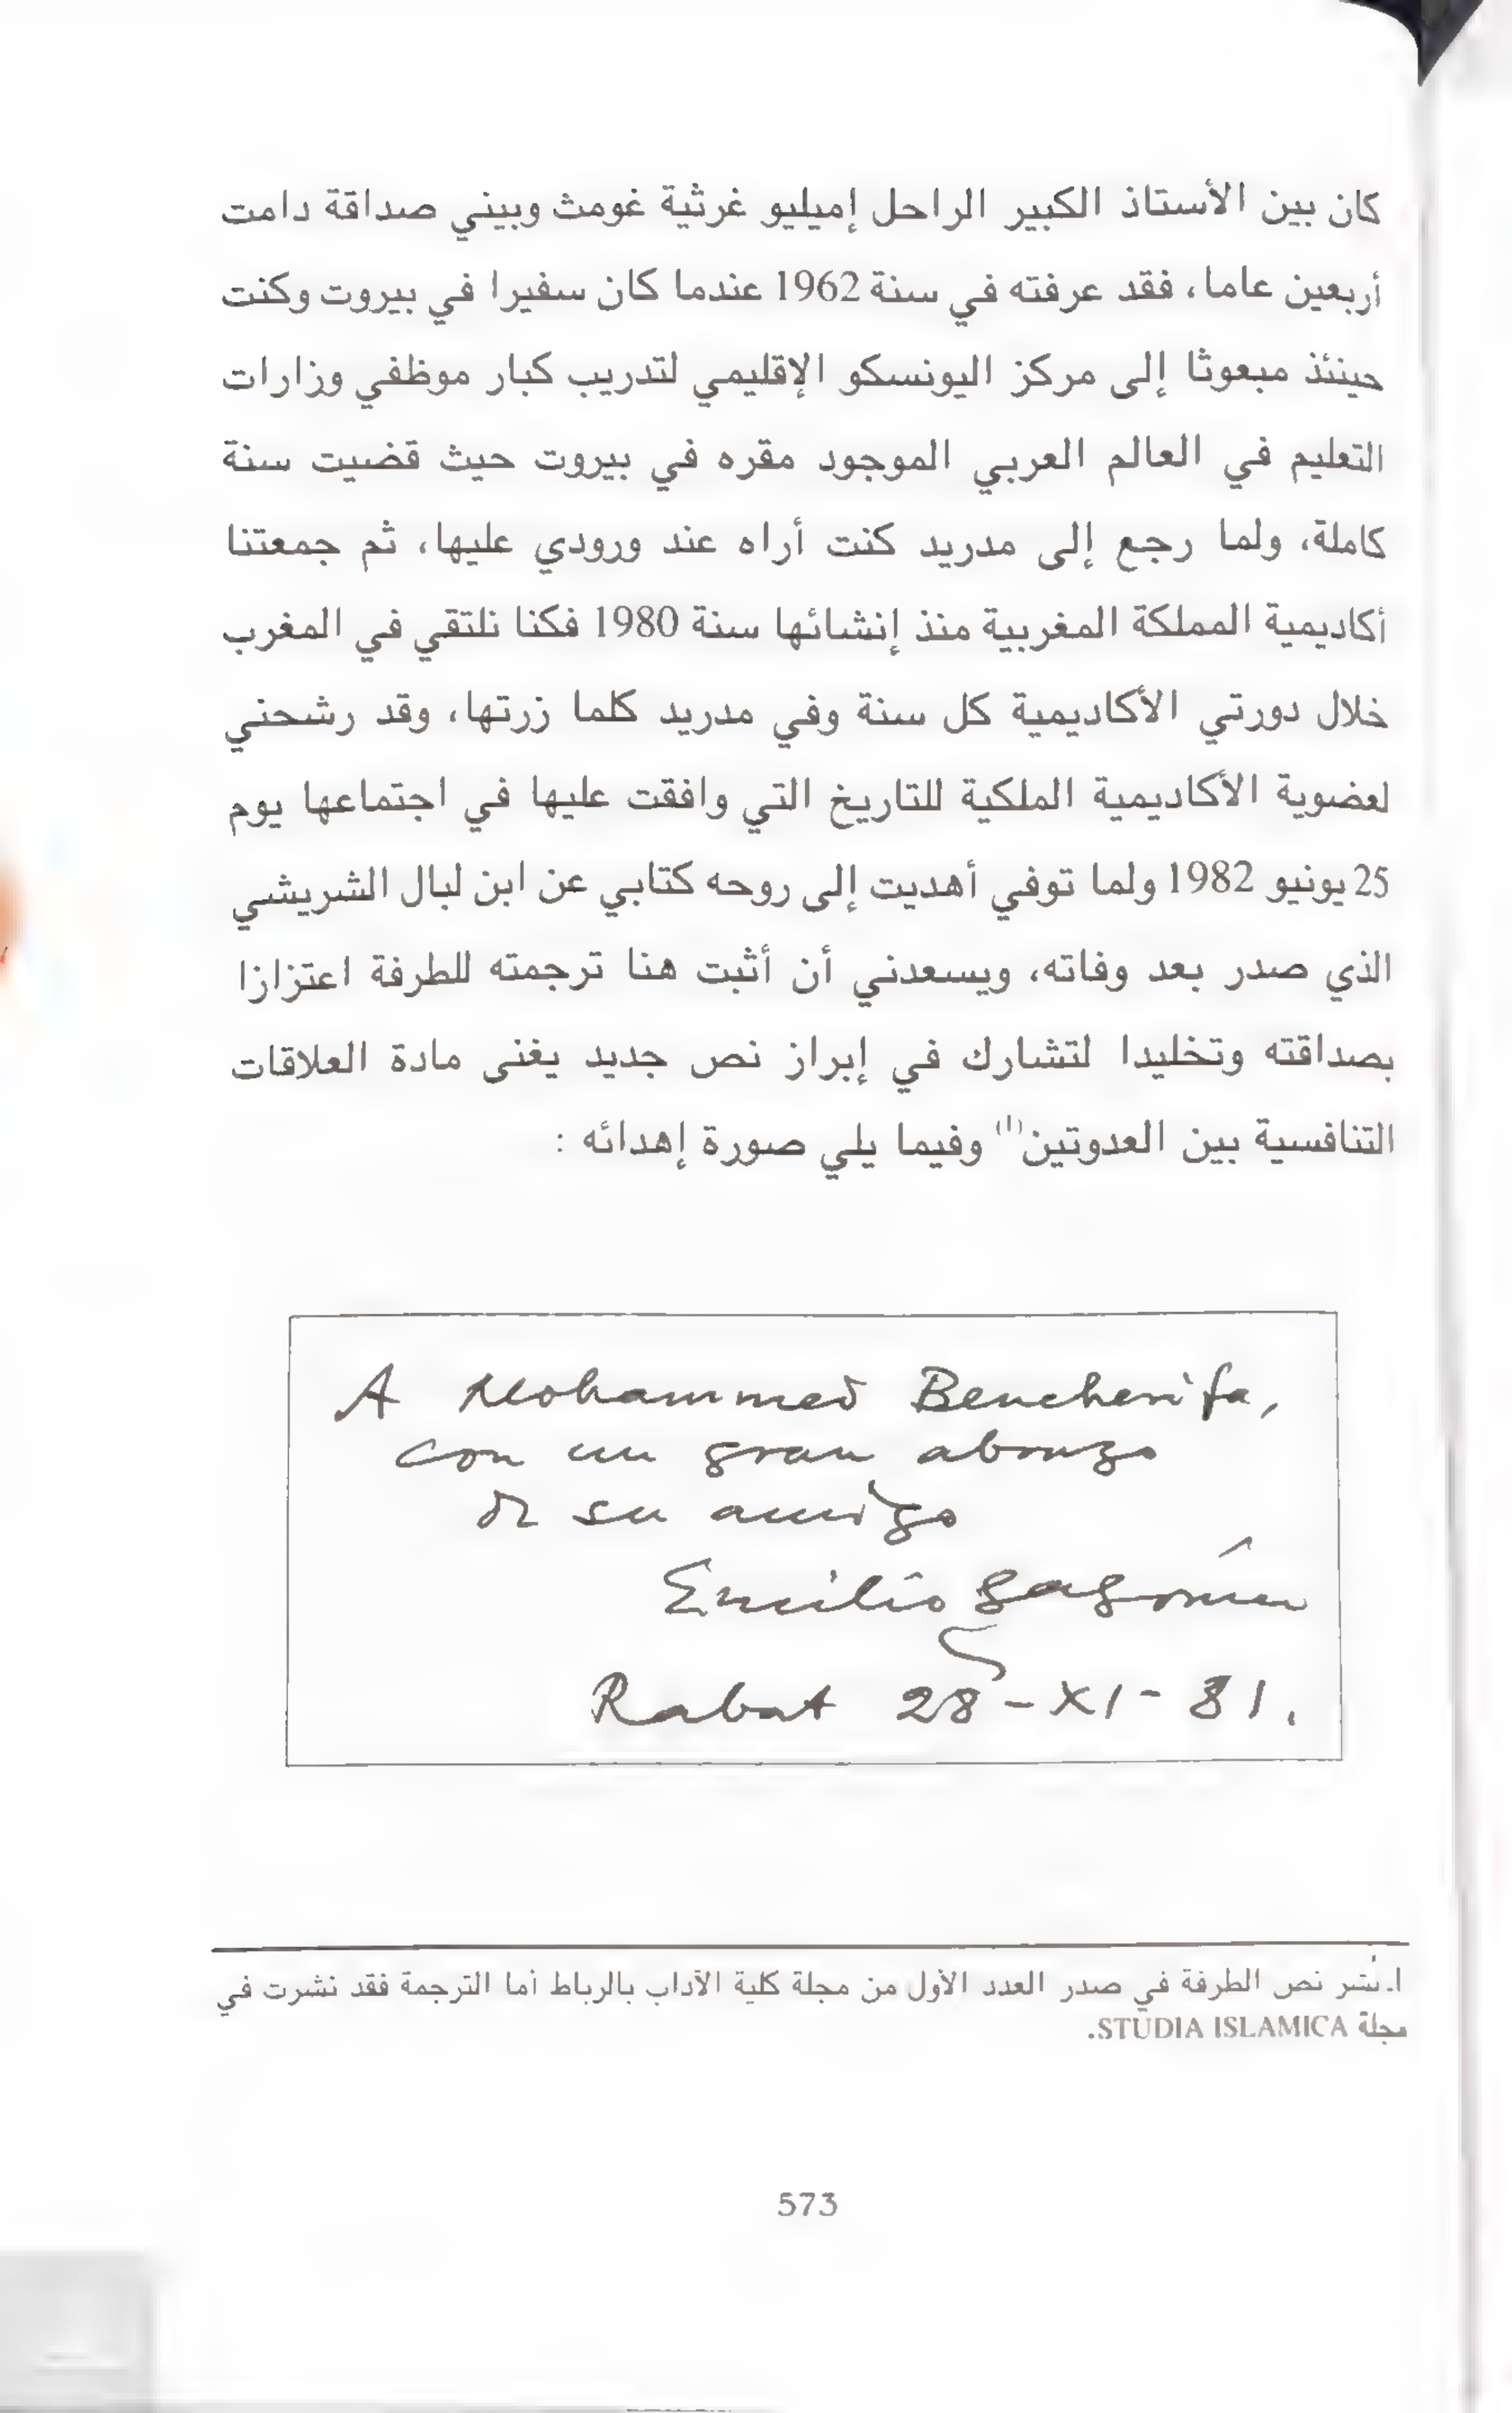 كان بين الأستاذ الكبير الراحل إميليو غرثية غومث وبيني صداقة دامت
أربعين عاما، فقد عرفته في سنة 1962 عندما كان سفيرا في بيروت وكنت
حينئذ مبعوثا إلى مركز اليونسكو الإقليمي لتدريب كبار موظفي وزارات
التعليم في العالم العربي الموجود مقره في بيروت حيث قضيت سنة
كاملة، ولما رجع إلى مدريد كنت أراه عند ورودي عليها، ثم جمعتنا
أكاديمية المملكة المغربية منذ إنشائها سنة 1980 فكنا نلتقي في المغرب
خلال دورتي الأكاديمية كل سنة وفي مدريد كلما زرتها، وقد رشحني
لعضوية الأكاديمية الملكية للتاريخ التي وافقت عليها في اجتماعها يوم
25 يونيو 1982 ولما توفي أهديت إلى روحه كتابي عن ابن لبال الشريشي
الذي صدر بعد وفاته، ويسعدني أن أثبت هنا ترجمته للطرفة اعتزازا
بصداقته وتخليدا لتشارك في إبراز نص جديد يغنى مادة العلاقات
التنافسية بين العدوتين(1) وفيما يلي صورة إهدائه :
A Mohammed Bencherifa,
con un gran abrazo
de su amigo
Emilio
Rabat 28-XI-81.
1. نُشر نص الطرفة في صدر العدد الأول من مجلة كلية الآداب بالرباط أما الترجمة فقد نشرت في
مجلة STUDIA ISLAMICA.
573